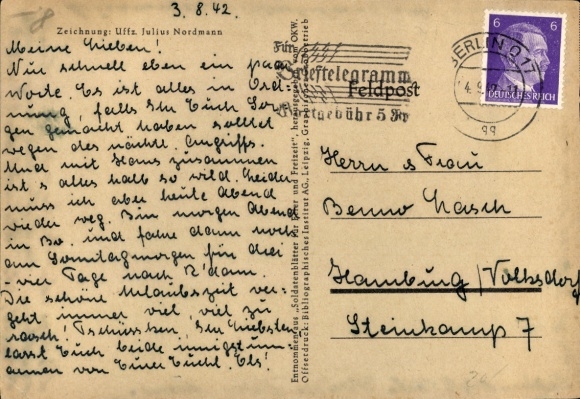 3.8.42.
Zeichnung: Uffz. Julius Nordmann
Meine Lieben!
Nur schnell eben ein paar
Worte. Es ist alles in Ord-
nung, falls Ihr Euch Sor-
gen gemacht haben solltet
wegen des nächtl. Angriffs.
Und mit Hans zusammen
ist s alles halb so wild. Leider
muss ich aber heute Abend
wieder weg. Bin morgen Abend
in Bo. und fahre dann noch
am Sonntagmorgen für drei
- vier Tage nach P'dam.
Die schöne Urlaubszeit ver-
geht immer viel, viel zu
rasch! Tschüsschen. Ihr Liebsten
lasst Euch beide innigst um-
armen von Eurer Euchl. Els!
Entnommen aus „Soldatenblätter für Feier und Freizeit", herausgegeben vom OKW.
Offsetdruck: Bibliographisches Institut AG., Leipzig, Graphische
Für
Brieftelegramm
Feldpost
gebühr 5
BERLIN O 17
4.9.
qq
6 6
DEUTSCHES REICH
Herrn & Frau
Benno Lasch
Hamburg/Volksdorf
Steinkamp 7